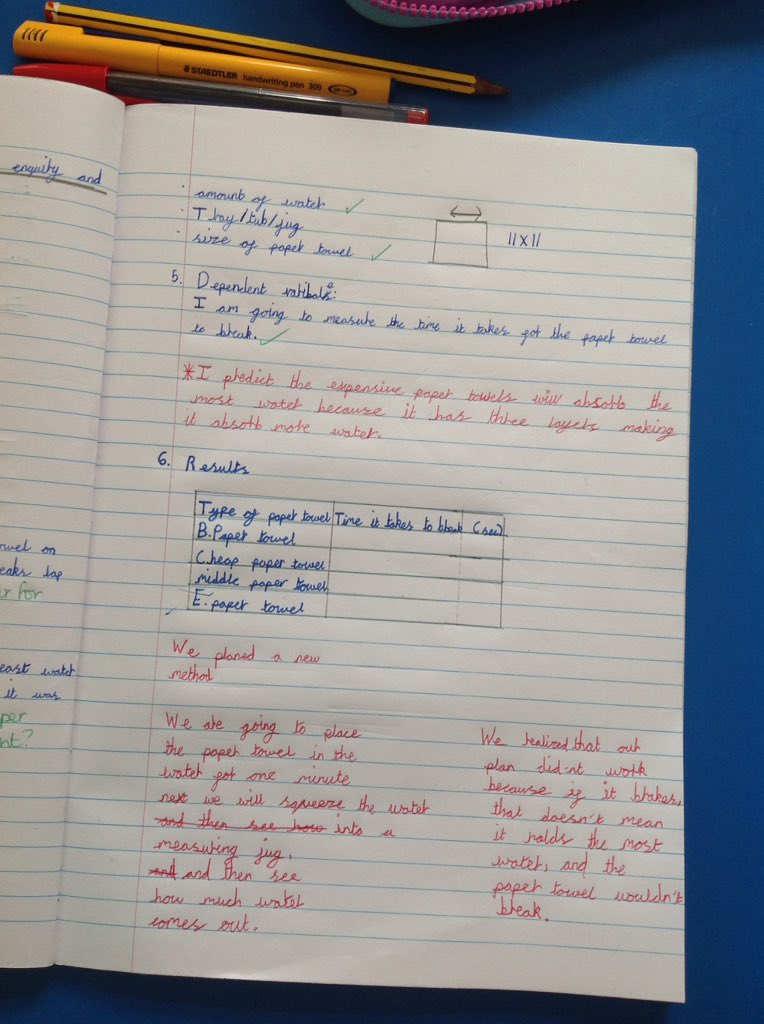 STAEDTLER handwriting pen 309
enquity and
amount of water
Tray/tub/jug
size of paper towel
11x11
5. Dependent varibals:
I am going to measure the time it takes for the paper towel
to break.
*I predict the expensive paper towels will absorb the
most water because it has three layers making
it absorb more water.
6. Results
Type of paper towel Time it takes to break (sec)
B. Paper towel
C.heap paper towel
middle paper towel
E. paper towel
We planed a new
method
We are going to place
the paper towel in the
water for one minute
next we will squeeze the water
and then see how into a
measuring jug,
and and then see
how much water
comes out.
We realized that our
plan did-nt work
because if it brakes,
that doesn't mean
it holds the most
water, and the
paper towel wouldn't
break.
owel on
eaks tap
r for
east water
it was
per
nt?